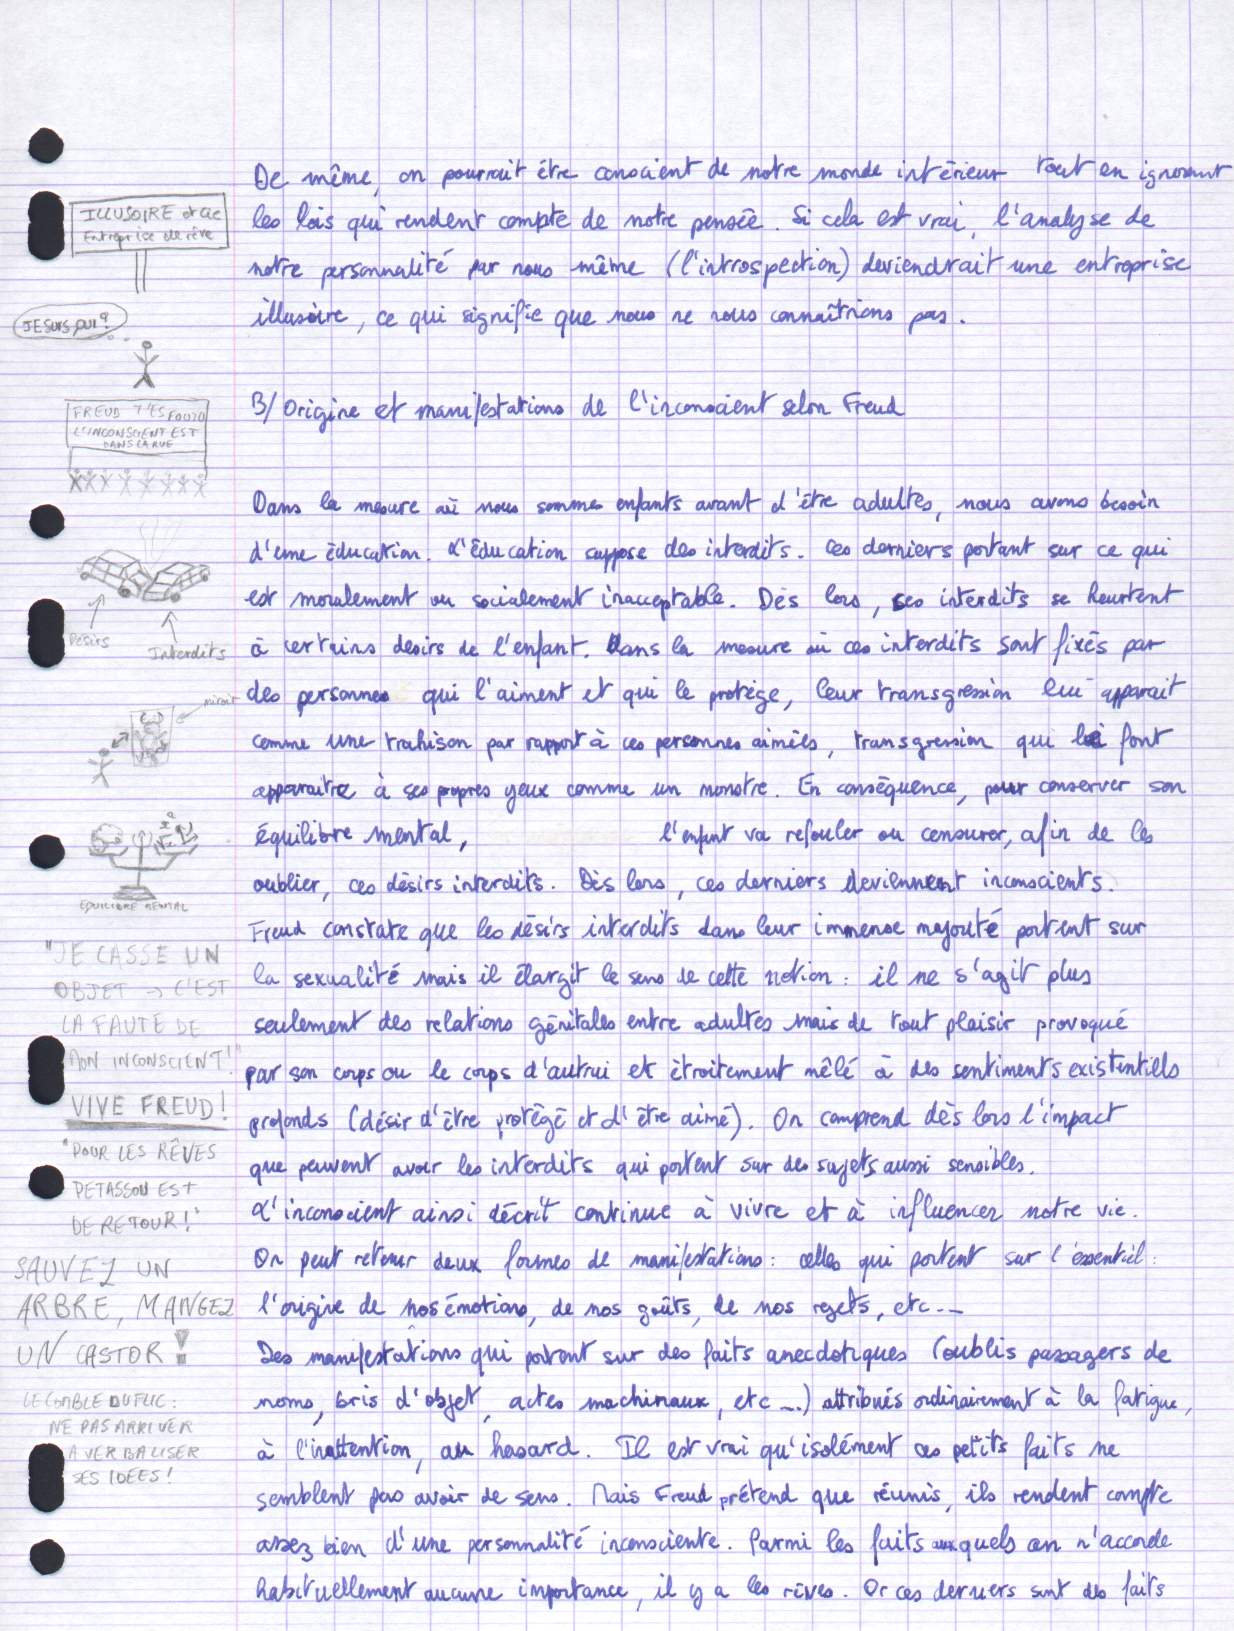 De même, on pourrait être conscient de notre monde intérieur tout en ignorant
les lois qui rendent compte de notre pensée. Si cela est vrai, l'analyse de
notre personnalité par nous même (l'introspection) deviendrait une entreprise
illusoire, ce qui signifie que nous ne nous connaîtrions pas.
B/ Origine et manifestations de l'inconscient selon Freud
Dans la mesure où nous sommes enfants avant d'être adultes, nous avons besoin
d'une éducation. L'éducation suppose des interdits. Ces derniers portant sur ce qui
est moralement ou socialement inacceptable. Dès lors, ses interdits se heurtent
à certains desirs de l'enfant. Dans la mesure où ces interdits sont fixés par
des personnes qui l'aiment et qui le protège, leur transgression lui apparait
comme une trahison par rapport à ces personnes aimées, transgression qui le font
apparaitre à ses propres yeux comme un monstre. En conséquence, pour conserver son
équilibre mental, l'enfant va refouler ou censurer, afin de les
oublier, ces désirs interdits. Dès lors, ces derniers deviennent inconscients.
Freud constate que les désirs interdits dans leur immense majorité portent sur
la sexualité mais il élargit le sens de cette notion : il ne s'agit plus
seulement des relations génitales entre adultes mais de tout plaisir provoqué
par son corps ou le corps d'autrui et étroitement mêlé à des sentiments existentiels
profonds (désir d'être protégé et d'être aimé). On comprend dès lors l'impact
que peuvent avoir les interdits qui portent sur des sujets aussi sensibles.
L'inconscient ainsi décrit continue à vivre et à influencer notre vie.
On peut retenir deux formes de manifestations : celles qui portent sur l'essentiel :
l'origine de nos émotions, de nos goûts, de nos rejets, etc...
Des manifestations qui portent sur des faits anecdotiques (oublis passagers de
noms, bris d'objet, actes machinaux, etc...) attribués ordinairement à la fatigue,
à l'inattention, au hasard. Il est vrai qu'isolément ces petits faits ne
semblent pas avoir de sens. Mais Freud prétend que réunis, ils rendent compte
assez bien d'une personnalité inconsciente. Parmi les faits auxquels on n'accorde
habituellement aucune importance, il y a les rêves. Or ces derniers sont des faits
ILLUSOIRE et Cie
Entreprise de rêve
JE suis qui ?
FREUD T'ES FOUTU
L'INCONSCIENT EST
DANS LA RUE
Désirs
Interdits
miroir
EQUILIBRE MENTAL
"JE CASSE UN
OBJET → C'EST
LA FAUTE DE
MON INCONSCIENT!"
VIVE FREUD!
"POUR LES RÊVES
PETASSOU EST
DE RETOUR!"
SAUVEZ UN
ARBRE, MANGEZ
UN CASTOR!
LE COMBLE DU FLIC :
NE PAS ARRIVER
A VERBALISER
SES IDÉES!